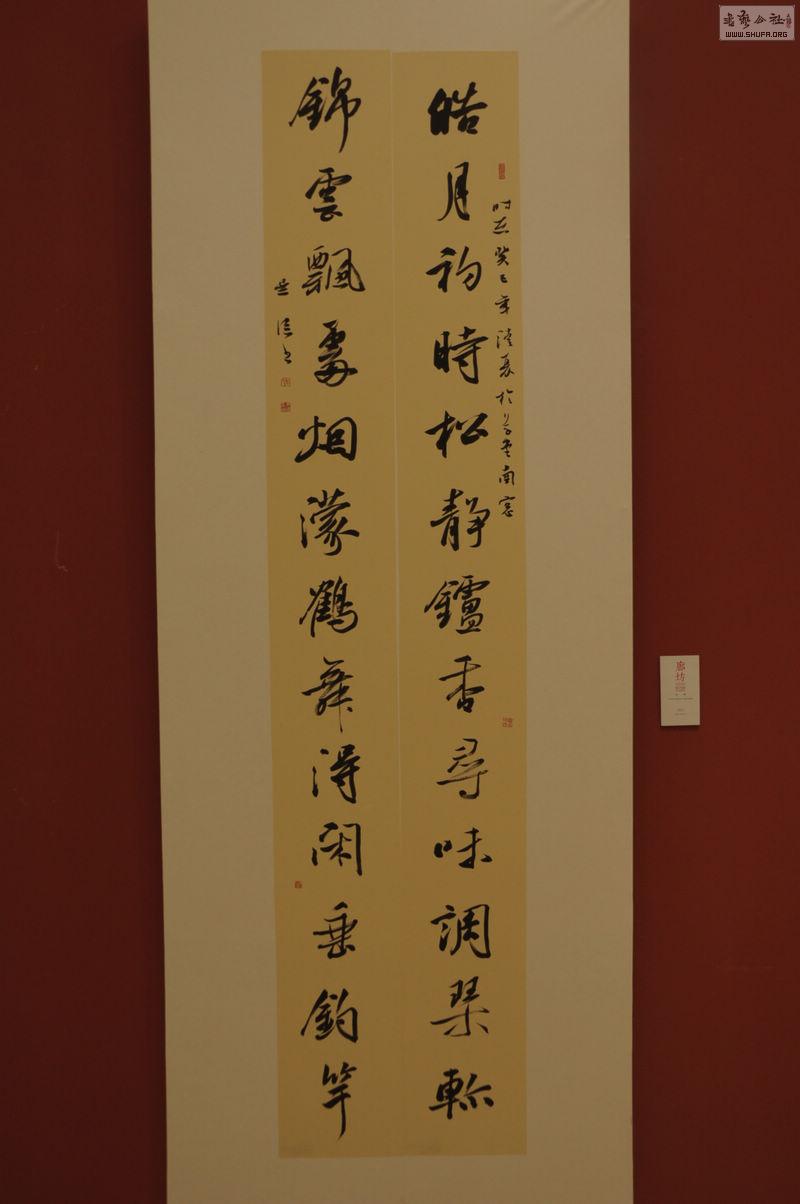 皓月初時松靜鑪香尋味調琴軫
時在癸巳年 夏於 南窓
錦雲飄處烟濛鶴舞得閑垂釣竿
書
廊坊
書藝公社
WWW.SHUFA.ORG